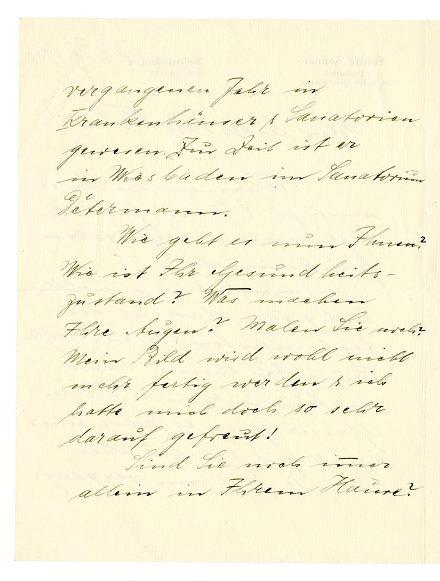 vergangenen Jahr in
Krankenhäuser & Sanatorien
gewesen. Zur Zeit ist er
in Wiesbaden im Sanatorium
Determann.
Wie geht es nun Ihnen?
Wie ist Ihr Gesundheits-
zustand? Was machen
Ihre Augen? Malen Sie noch?
Mein Bild wird wohl nicht
mehr fertig werden & ich
hatte mich doch so sehr
darauf gefreut!
Sind Sie noch immer
allein in Ihrem Hause?